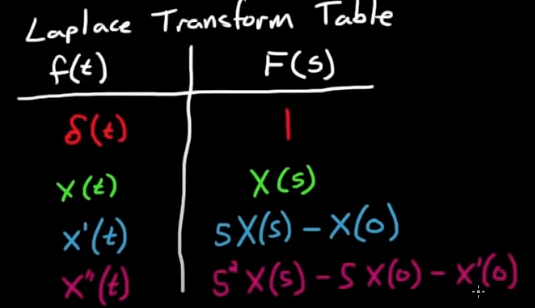 Laplace Transform Table
f(t) F(s)
δ(t) 1
x(t) X(s)
x'(t) sX(s) - x(0)
x"(t) s² X(s) - s x(0) - x'(0)